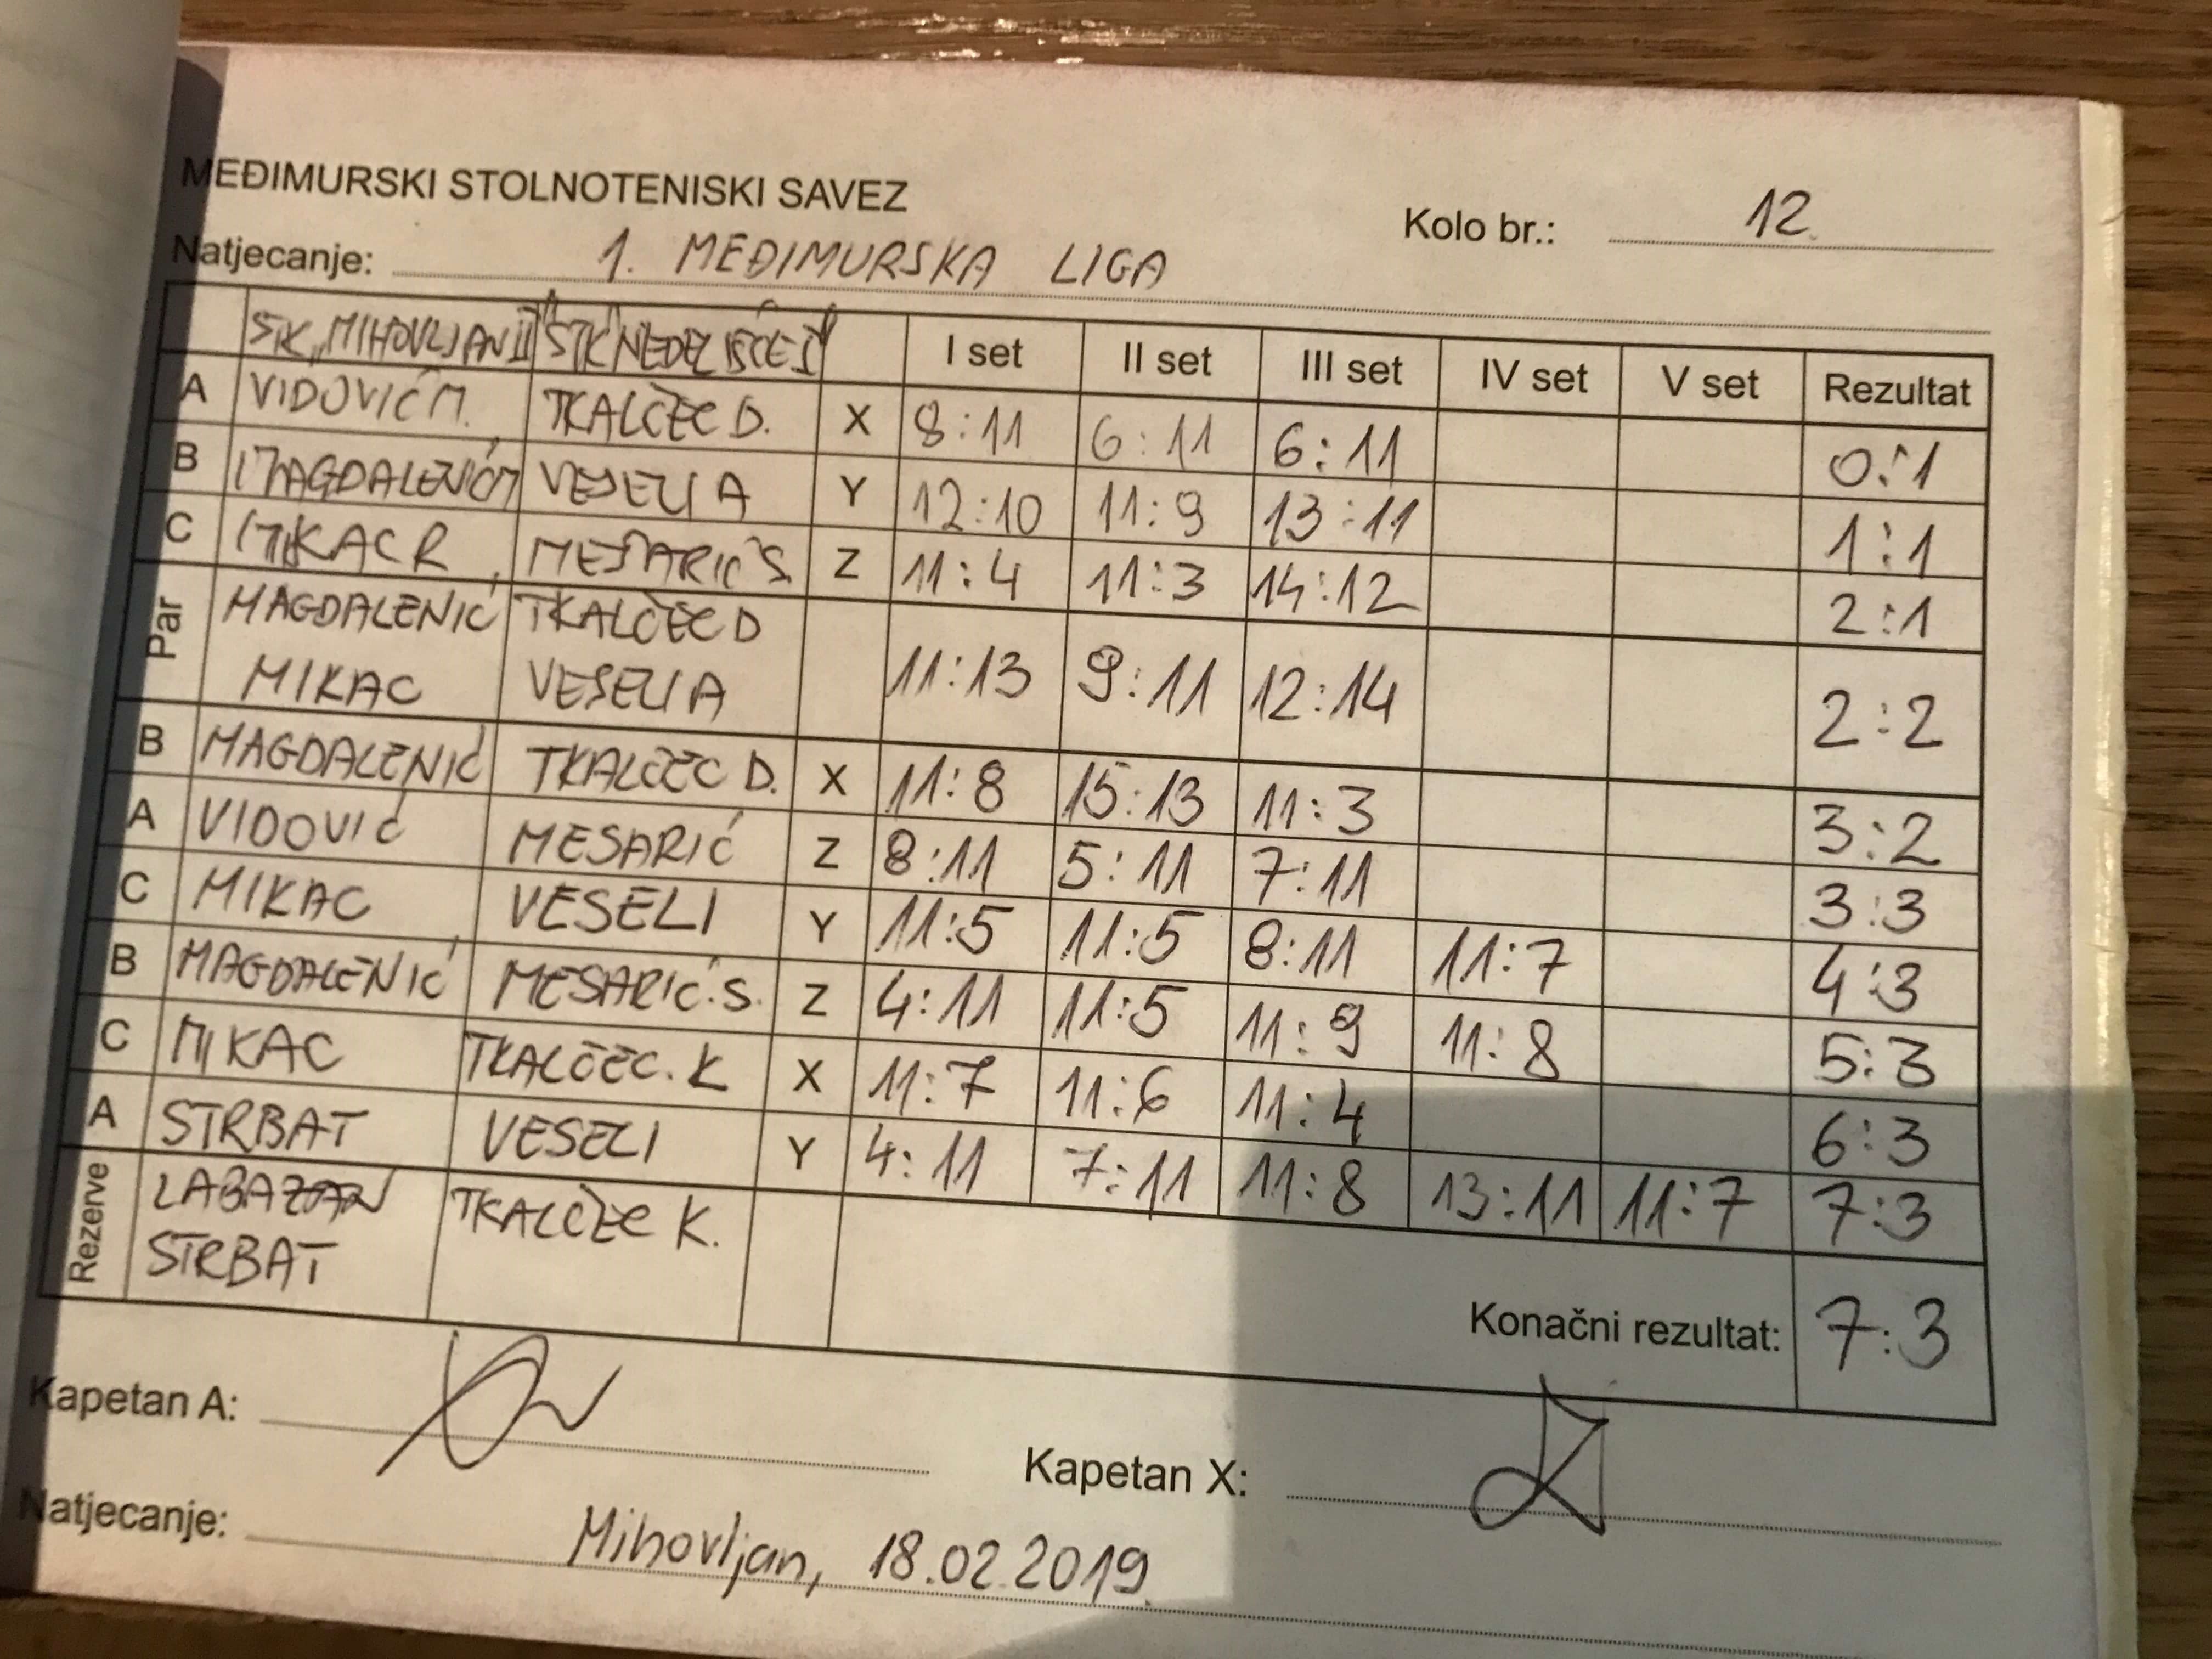 MEĐIMURSKI STOLNOTENISKI SAVEZ
Kolo br.: 12.
Natjecanje: 1. MEĐIMURSKA LIGA
STK „MIHOVLJAN II" STK "NEDELIŠĆE I" I set II set III set IV set V set Rezultat
A VIDOVIĆ M. TKALČEC D. X 8:11 6:11 6:11 0:1
B MAGDALENIĆ M VESELI A Y 12:10 11:9 13:11 1:1
C MIKAC R MESARIĆ S. Z 11:4 11:3 14:12 2:1
Par MAGDALENIĆ TKALČEC D
MIKAC VESELI A 11:13 9:11 12:14 2:2
B MAGDALENIĆ TKALČEC D. X 11:8 15:13 11:3 3:2
A VIDOVIĆ MESARIĆ Z 8:11 5:11 7:11 3:3
C MIKAC VESELI Y 11:5 11:5 8:11 11:7 4:3
B MAGDALENIĆ MESARIĆ.S. Z 4:11 11:5 11:9 11:8 5:3
C MIKAC TKALČEC.K X 11:7 11:6 11:4 6:3
A STRBAT VESELI Y 4:11 7:11 11:8 13:11 11:7 7:3
Rezerve LABAZAN TKALČEC K.
STRBAT
Konačni rezultat: 7:3
Kapetan A:
Kapetan X:
Natjecanje: Mihovljan, 18.02.2019.